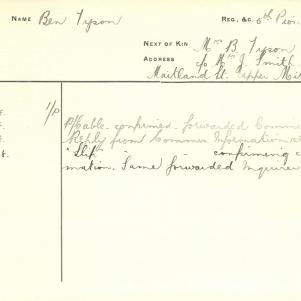 NAME Ben Tyson REG. &C. 5th Pion
NEXT OF KIN Mrs B. Tyson
ADDRESS c/o Mrs J. Smith
Maitland St. Upper Mit
1/P P/Cable - confirmed - forwarded
Reply from Common Information
"Slip" - - confirming c
mation. Same forwarded Inquirer